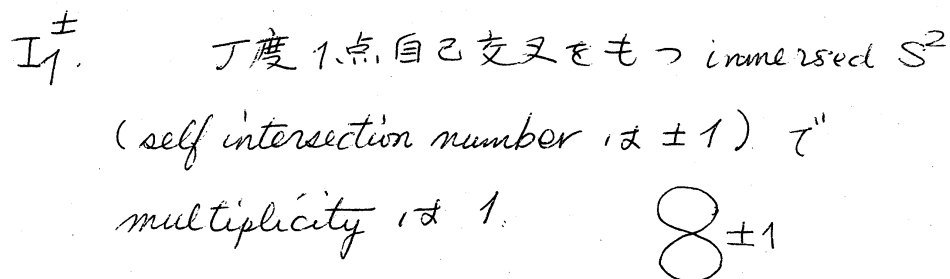 I₁^±. 丁度1点自己交叉をもつ immersed S²
(self intersection number は ±1) で
multiplicity は 1.
±1